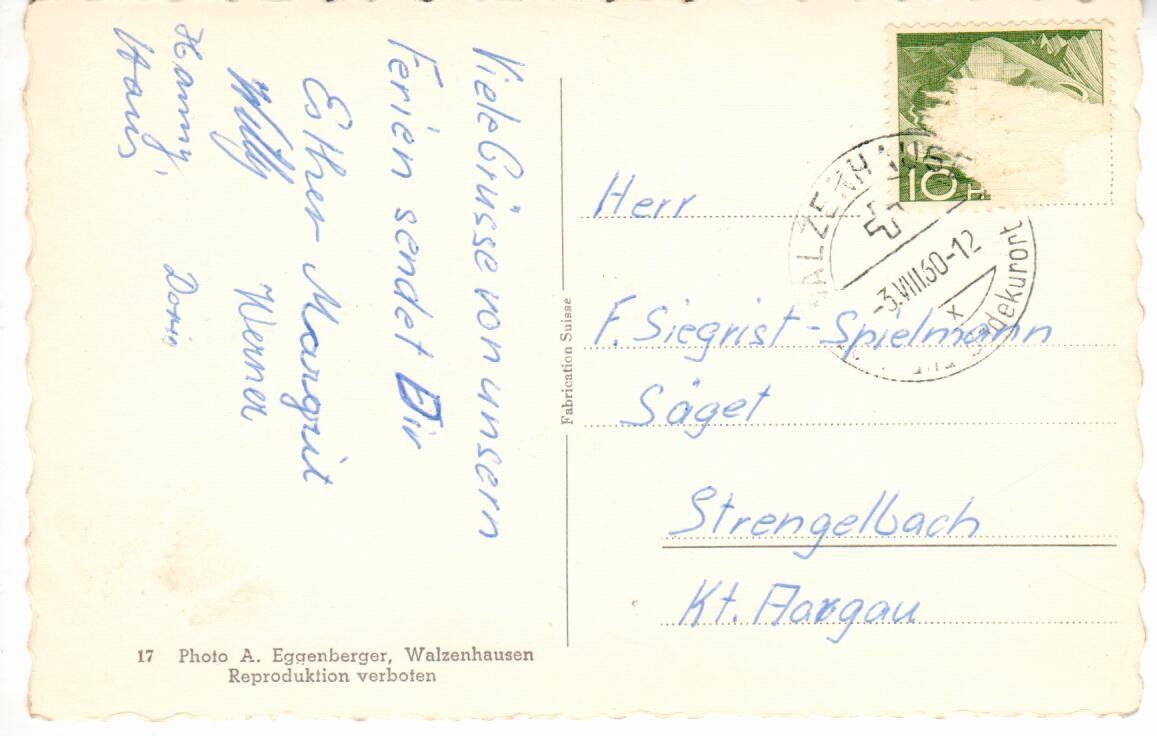 Viele Grüsse von unsern
Ferien sendet Dir
Esther Margrit
Willy Werner
Hanny, Doris
Hans
Fabrication Suisse
10 H
WALZENHAUSE
-3.VIII.60-12
x
Badekurort
Herr
F. Siegrist-Spielmann
Säget
Strengelbach
Kt. Aargau
17 Photo A. Eggenberger, Walzenhausen
Reproduktion verboten